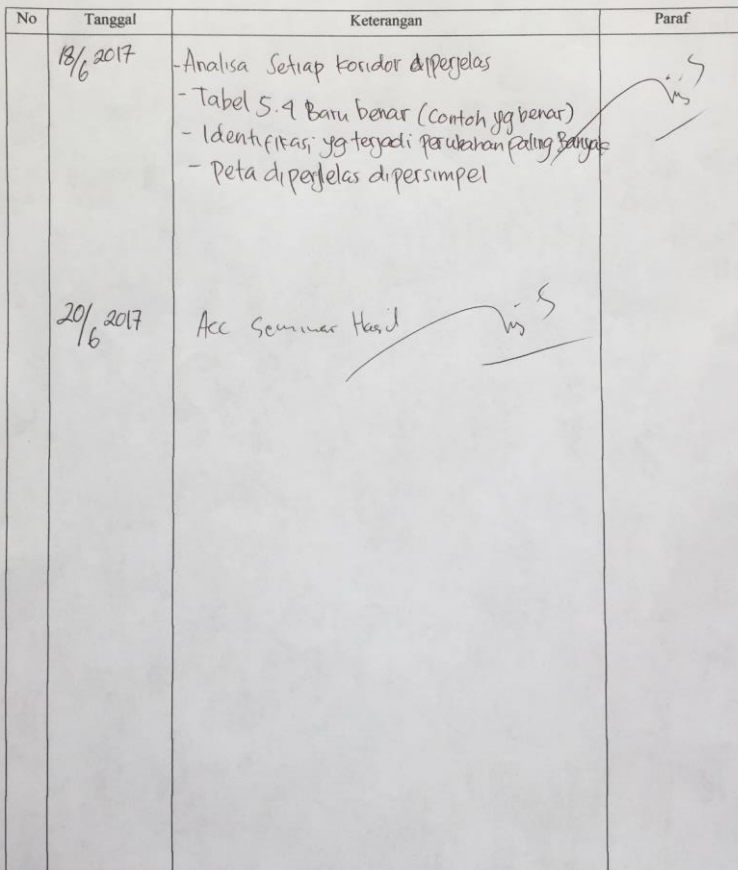 No Tanggal Keterangan Paraf
18/6 2017 - Analisa Setiap koridor diperjelas
- Tabel 5.4 Baru benar (Contoh yg benar)
- Identifikasi yg terjadi perubahan paling Banyak
- Peta diperjelas dipersimpel
20/6 2017 Acc Seminar Hasil